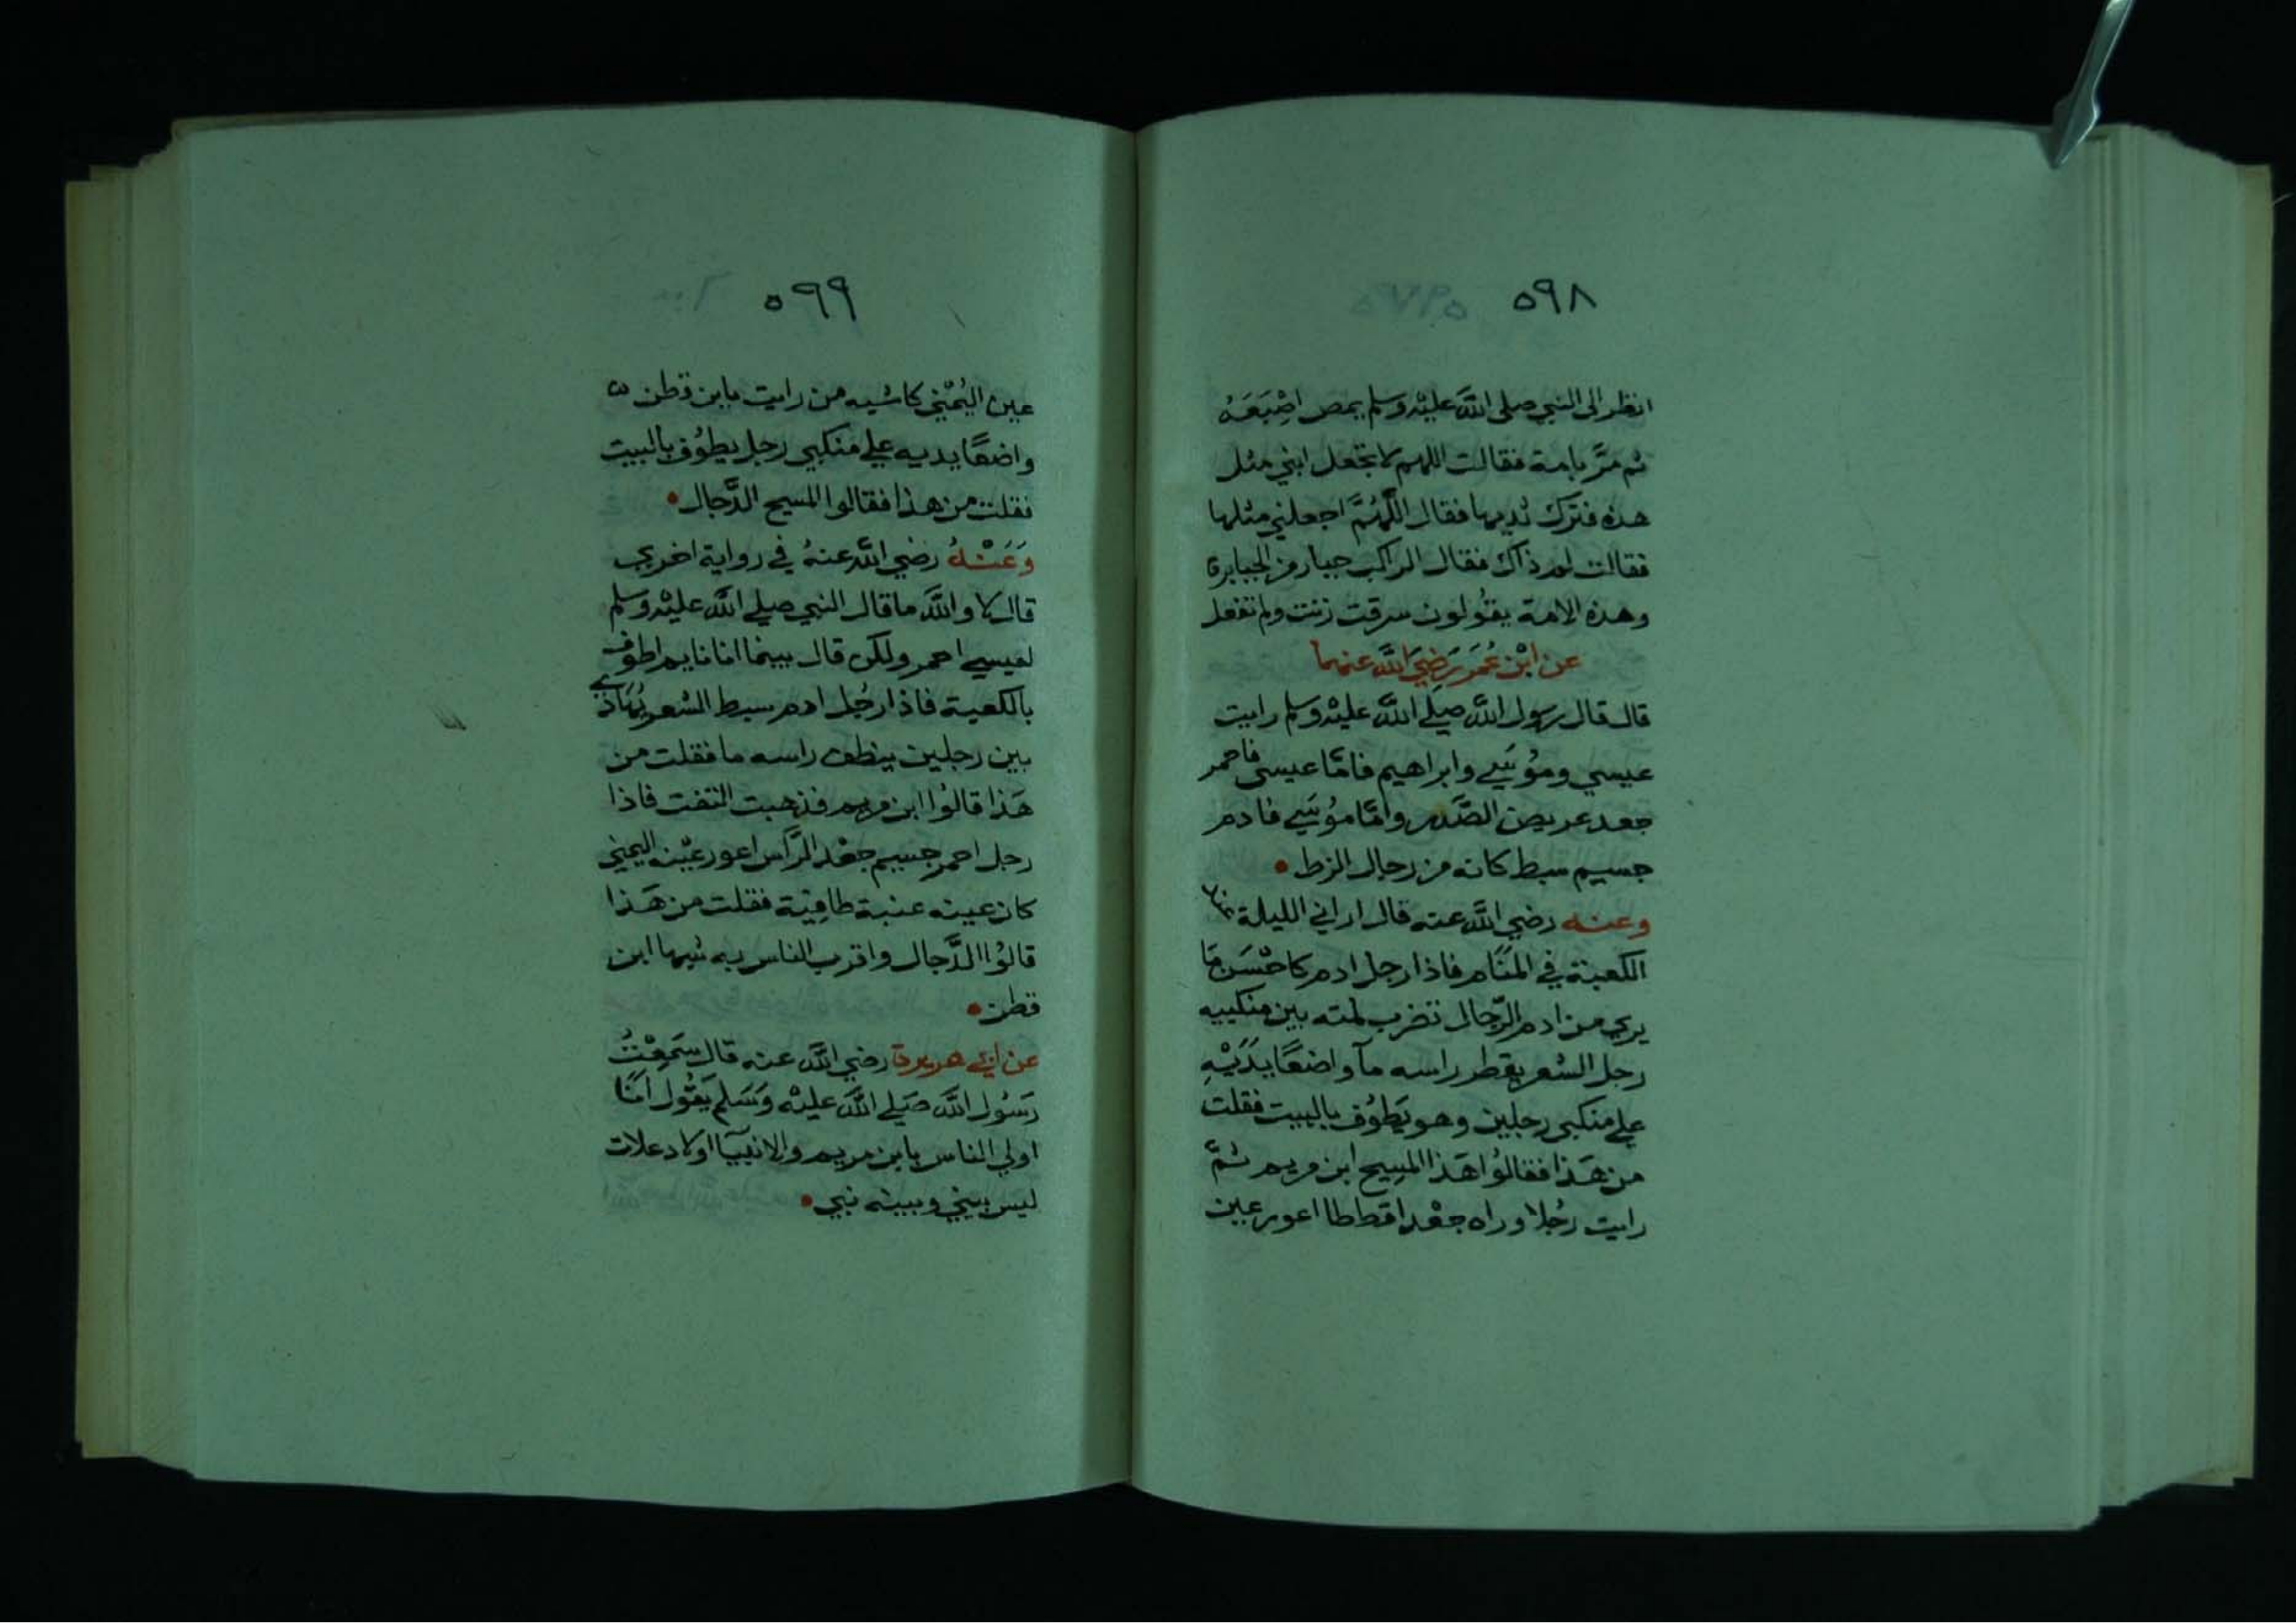 ٥٩٨
انظر الى النبي صلى الله عليه وسلم يمص اصْبَعَهُ
ثم مرَّ بامة فقالت اللهم لا تجعل ابني مثل
هذه فترك ثديها فقال اللَّهُمَّ اجعلني مثلها
فقالت لم ذاك فقال الراكب جبار من الجبابرة
وهذه الامة يقولون سرقت زنت ولم تفعل
عن ابْن عُمَر رَضِيَ اللَّه عنهما
قال قال رسول الله صلى الله عليه وسلم رايت
عيسي وموُسَي وابراهيم فامَّا عيسى فاحمر
جعد عريض الصَّدر وامَّا موُسَي فادم
جسيم سبط كانه من رجال الزط
وعنه رضي الله عنه قال اراني الليلة عند
الكعبة في المنَام فاذا رجل ادم كاحْسَن مَا
يري من ادم الرّجال تضرب لمته بين منكبيه
رجل الشعر يقطر راسه مآ واضعًا يَدَيْهِ
علي منكبي رجلين وهو يَطوُف بالبيت فقلت
من هَذا فقالوُا هَذا المسِيح ابن مريم ثمَّ
رايت رُجلا وراه جعْدا قططا اعور عين
٥٩٩
عين اليُمْني كاشبه من رايت بابن قطن
واضعًا يديه علي منكبي رجل يطوُف بالبيت
فقلت من هذا فقالوا المسيح الدَّجال
وَعَنْهُ رضي الله عنهُ في رواية اخري
قال لا والله ما قال النبي صلي الله عليْه وسلم
لعيسي احمر ولكن قال بينما انا نايم اطوف
بالكعبة فاذا رجُل ادم سبط الشعر يُهَادَي
بين رجلين ينطف راسه ما فقلت من
هَذا قالوُا ابن مريم فذهبت التفت فاذا
رجل احمر جسيم جعْد الرَّأس اعور عيْنه اليمني
كان عينه عنبة طافِيَة فقلت من هَذا
قالوُا الدَّجال واقرب الناس به شبها ابن
قطن
عن ابي هريرة رضي الله عنه قال سَمِعْتُ
رَسُول الله صَلي الله عليْه وَسَلم يَقُول انَا
اولي الناس بابن مريم والانبيآ اولاد علات
ليس بيني وبينه نبي